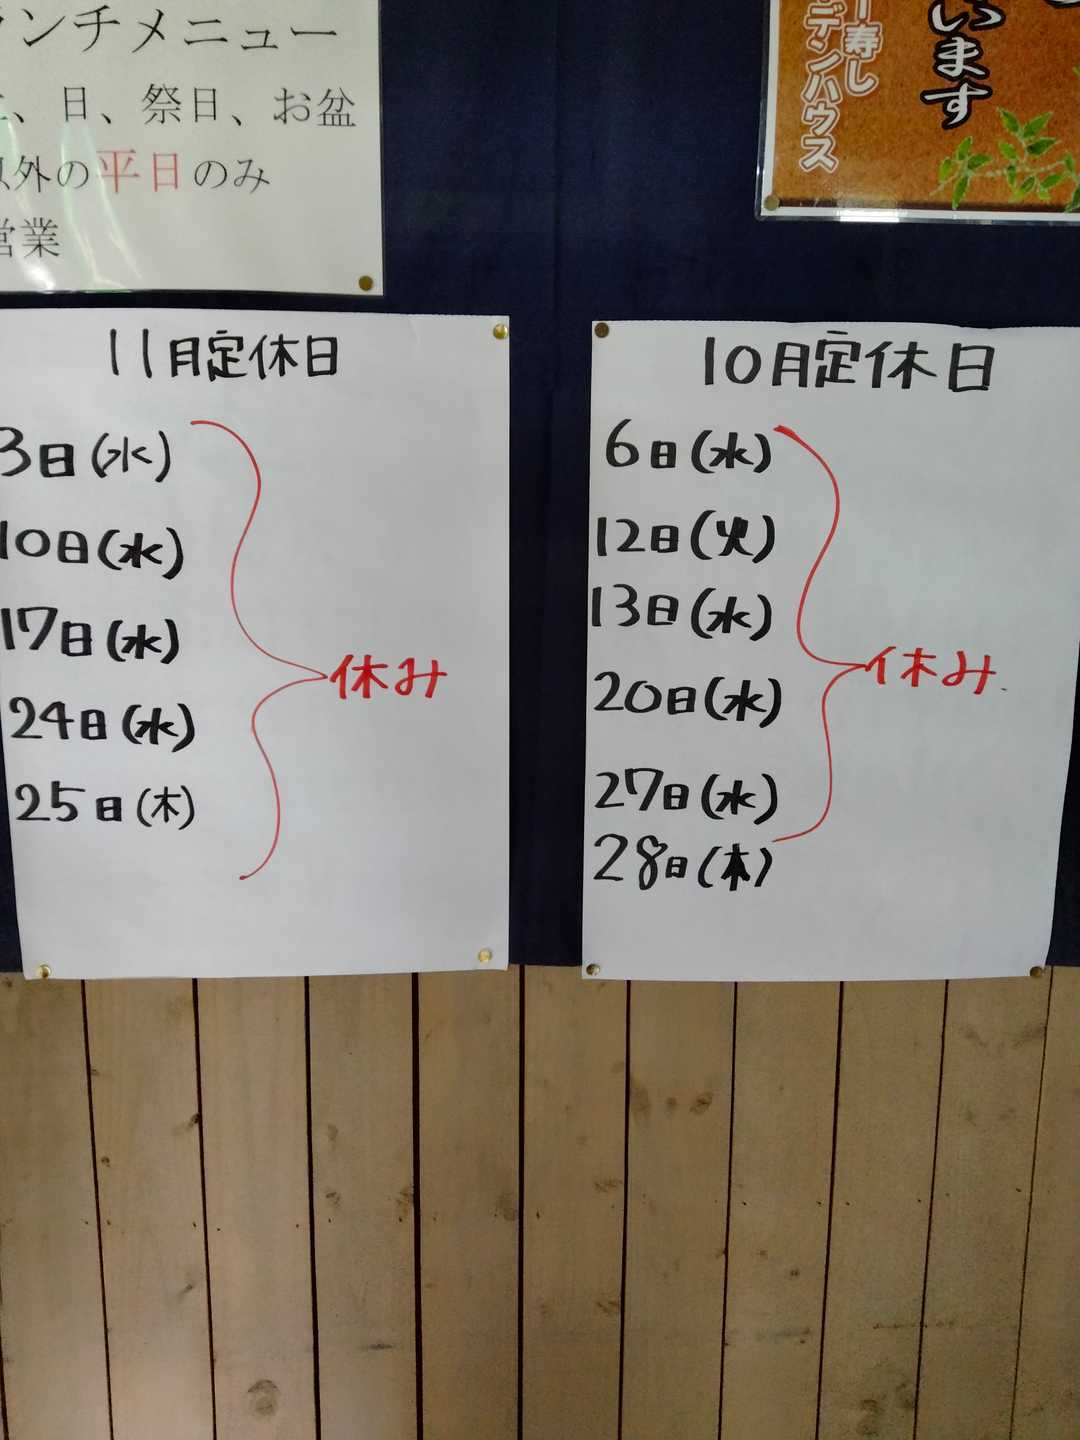 ランチメニュー
土、日、祭日、お盆
以外の平日のみ
営業
寿し
デンハウス
います
11月定休日
3日(水)
10日(水)
17日(水)
24日(水)
25日(木)
休み
10月定休日
6日(水)
12日(火)
13日(水)
20日(水)
27日(水)
28日(木)
休み